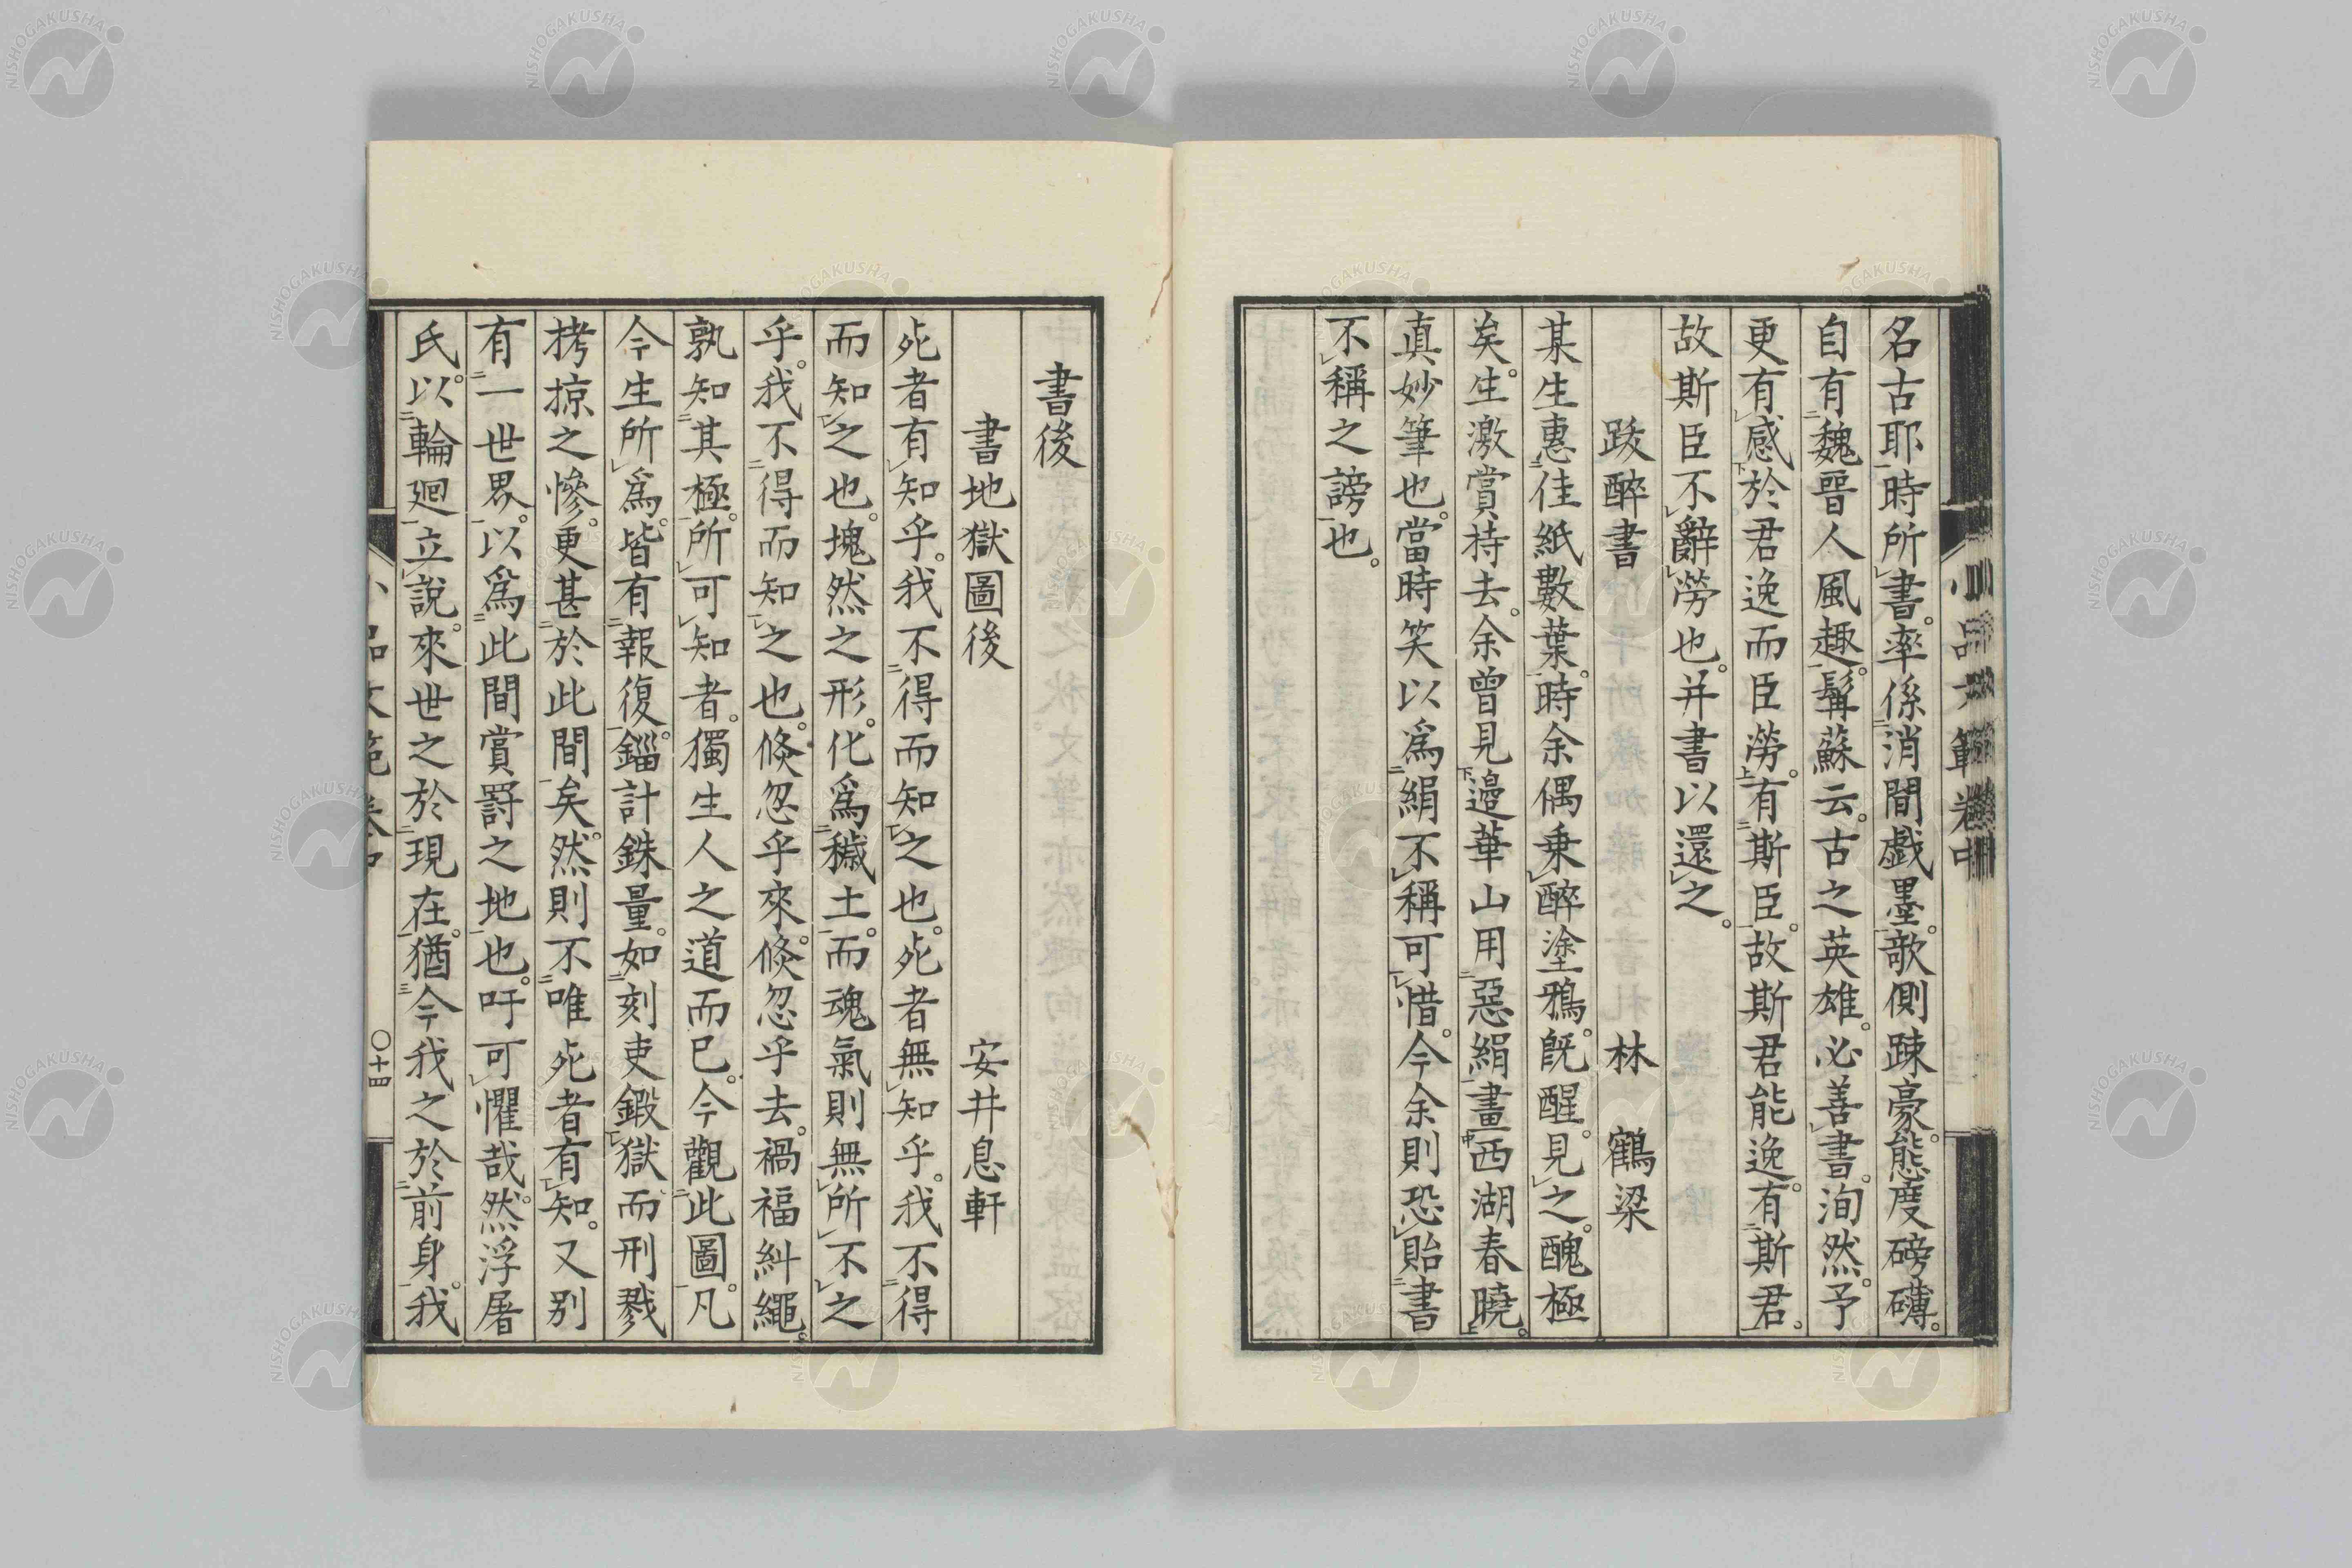 名古耶時所書。率係消間戯墨。欹側踈豪。態度磅礴。
自有魏晉人風趣。髯蘇云。古之英雄。必善書。洵然。予
更有感於君逸而臣勞。有斯臣。故斯君能逸。有斯君。
故斯臣不辭勞也。并書以還之。
跋醉書 林 鶴梁
某生惠佳紙數葉。時余偶乗醉塗鴉。既醒。見之。醜極
矣。生激賞持去。余曾見邉華山用惡絹畫西湖春曉。
真妙筆也。當時笑以爲絹不稱可惜。今余則恐貽書
不稱之謗也。
書後
書地獄圖後 安井息軒
死者有知乎。我不得而知之也。死者無知乎。我不得
而知之也。塊然之形。化爲穢土。而魂氣則無所不之
乎。我不得而知之也。倐忽乎來。倐忽乎去。禍福糾繩。
孰知其極。所可知者。獨生人之道而已。今觀此圖。凡
今生所爲。皆有報復。錙計銖量。如刻吏鍛獄而刑戮
拷掠之慘。更甚於此間矣。然則不唯死者有知。又別
有一世界。以爲此間賞罸之地也。吁可懼哉。然浮屠
氏。以輪廻立說。來世之於現在。猶今我之於前身。我
小品文範卷中
〇十四